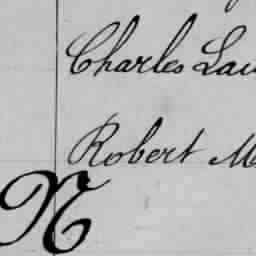 Charles Lau
Robert M
N